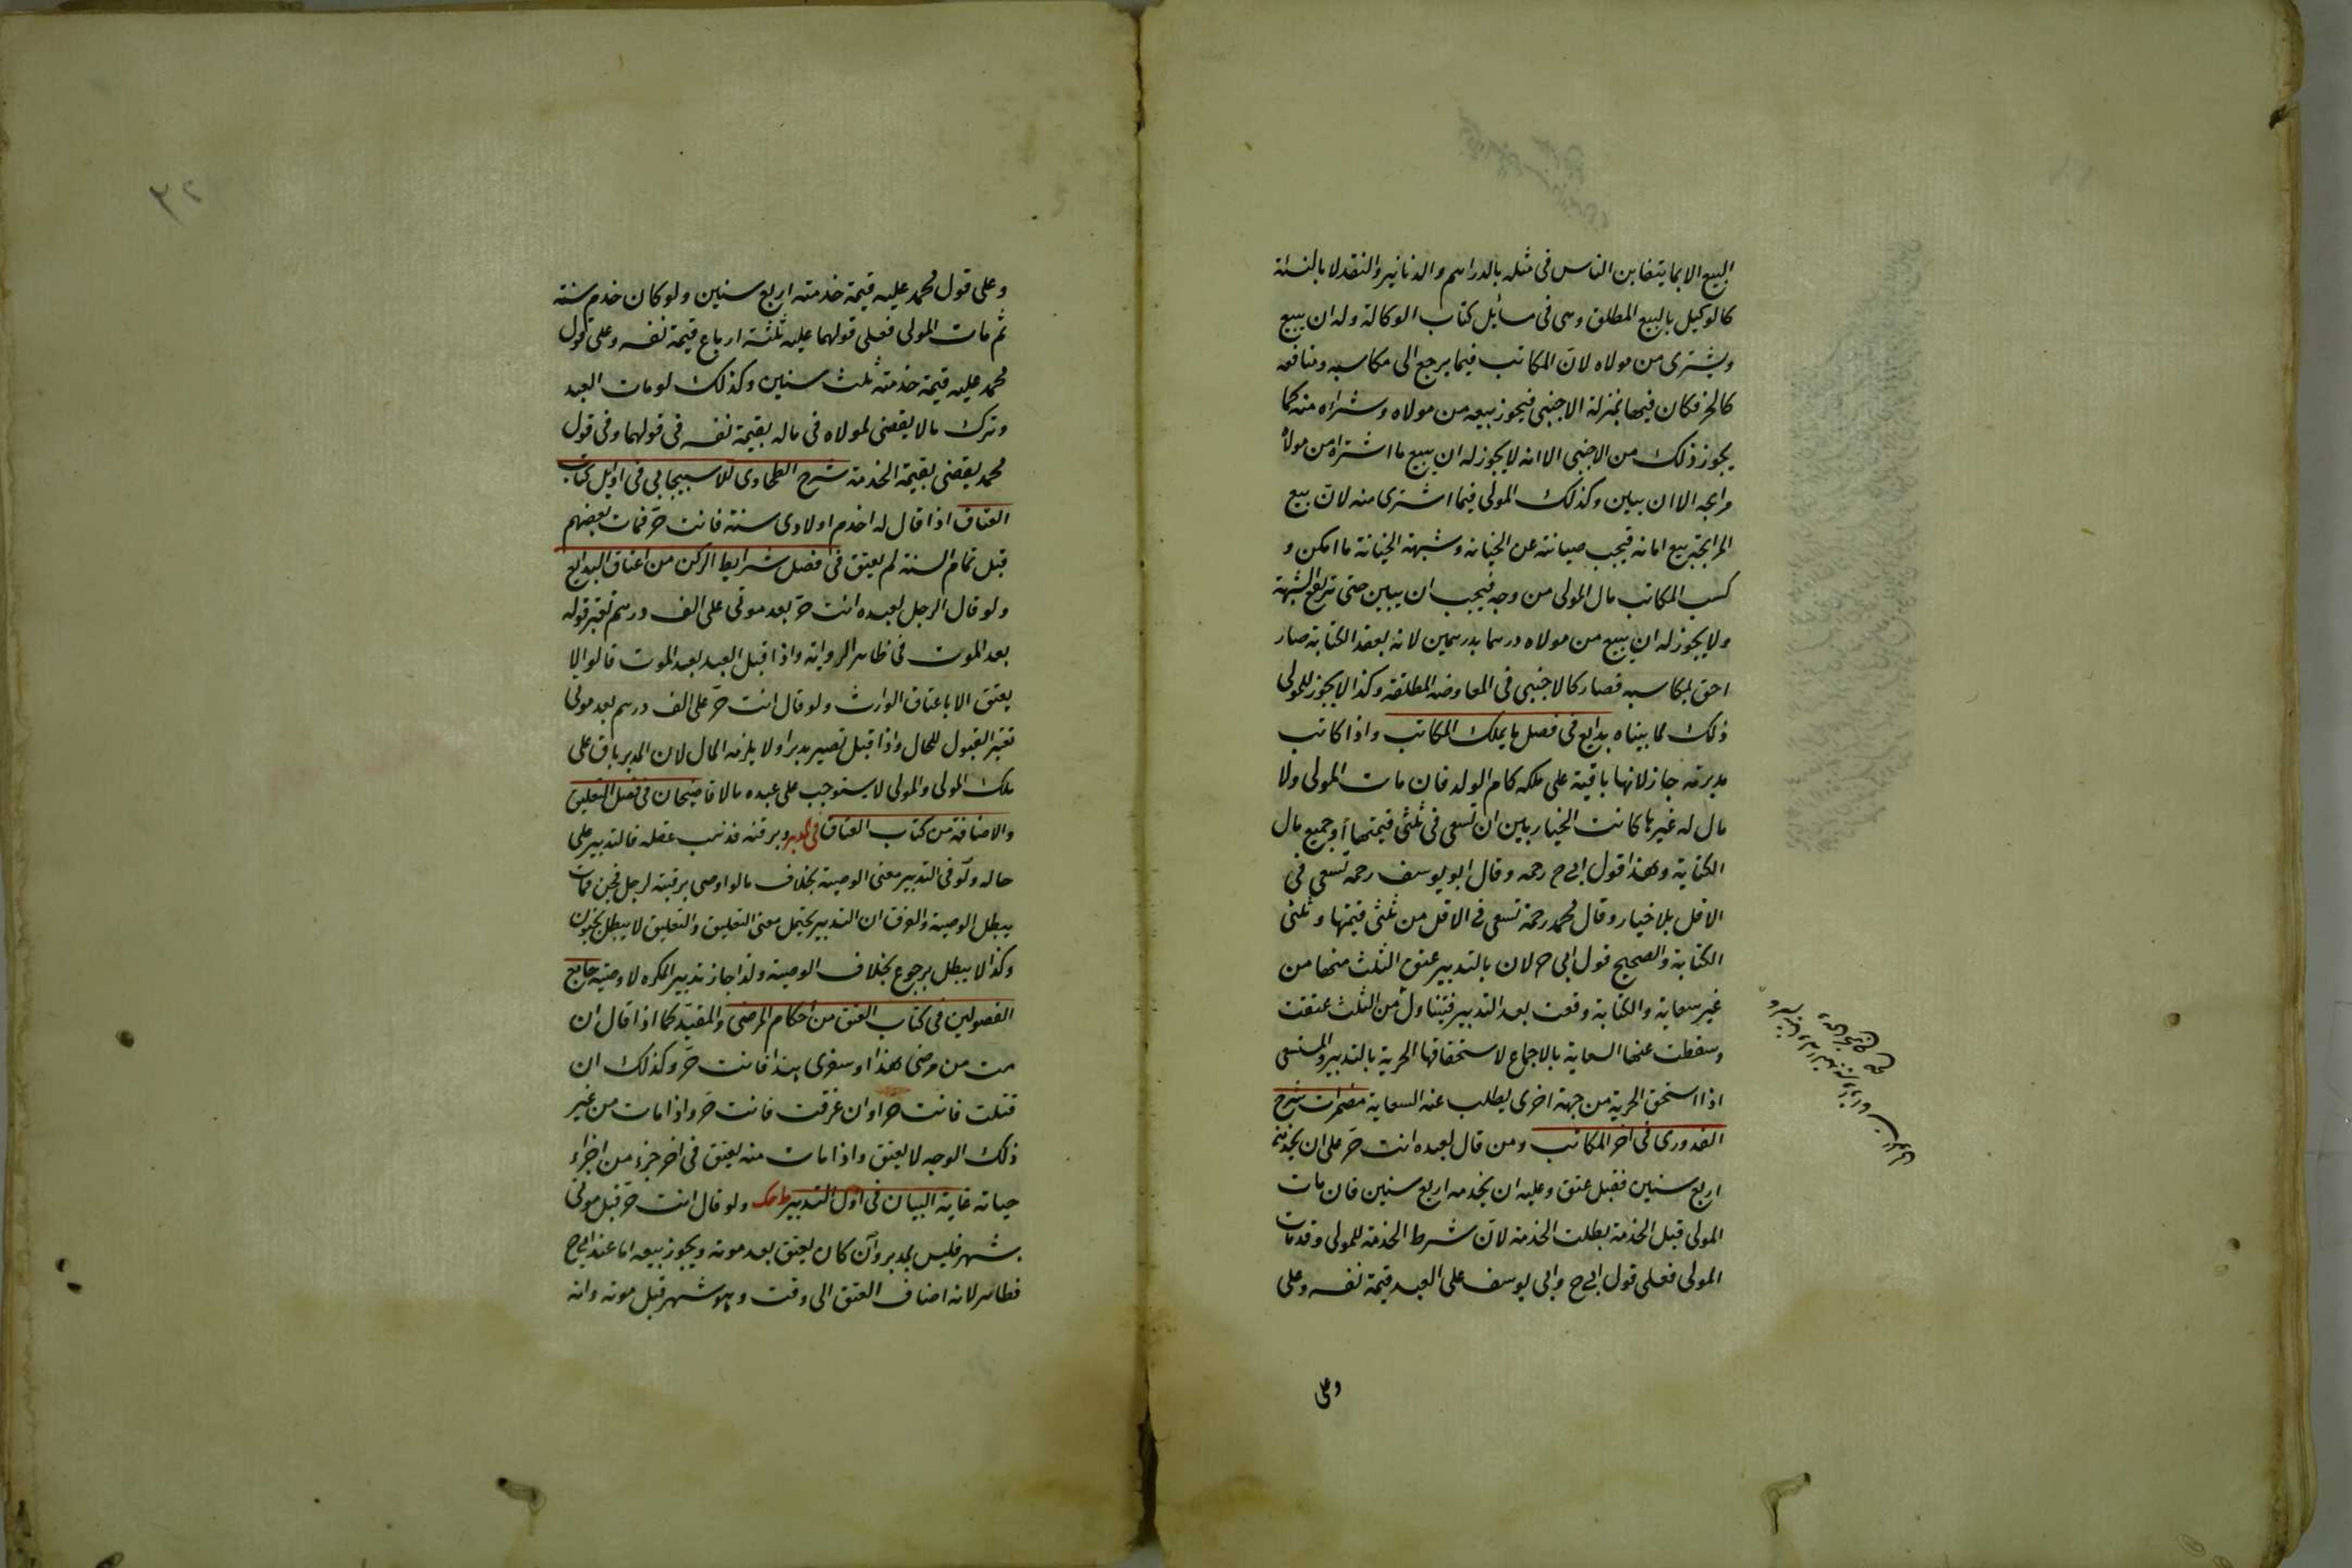 البيع الا بما يتغابن الناس فى مثله بالدراهم والدنانير والنقد لا بالنسئة
كالوكيل بالبيع المطلق وهى فى مسائل كتاب الوكالة وله ان يبيع
ويشترى من مولاه لان المكاتب فيما يرجع الى مكاسبه ومنافعه
كالحر فكان فيها بمنزلة الاجنبى فيجوز بيعه من مولاه وشراه منه كما
يجوز ذلك من الاجنبى الا انه لا يجوز له ان يبيع ما اشتراه من مولاه
مرابحه الا ان يبين وكذلك المولى فيما اشترى منه لان بيع
المرابحة بيع امانه فيجب صيانته عن الخيانه وشبهة الخيانة ما امكن و
كسب المكاتب مال المولى من وجه فيجب ان يبين حتى ترتفع الشبهة
ولا يجوز له ان يبيع من مولاه درهما بدرهمين لانه بعقد الكتابة صار
احق بمكاسبه فصار كالاجنبى فى المعاوضه المطلقة وكذا لا يجوز للمولى
ذلك لما بيناه بدايع فى فصل ما يملك المكاتب واذا كاتب
مدبرته جاز لانها باقية على ملكه كام الولد فان مات المولى ولا
مال له غيرها كانت الخيار بين ان تسعى فى ثلثى قيمتها او جميع مال
الكتابة وهذا قول ابى ح رحمه وقال ابو يوسف رحمه تسعى فى
الاقل بلا خيار وقال محمد رحمه تسعى فى الاقل من ثلثى قيمتها وثلثى
الكتابة والصحيح قول ابى ح لان بالتدبير عتق الثلث منها من
غير سعاية والكتابة وقعت بعد التدبير فتتناول من الثلث عتقت
وسقطت عنها السعاية بالاجماع لاستحقاقها الحرية بالتدبير والمستسعى
اذا استحق الحرية من جهة اخرى يطلب عنه السعاية مضمرات شرح
القدورى فى اخر المكاتب ومن قال لعبده انت حر على ان يخدمنى
اربع سنين فقبل عتق وعليه ان يخدمه اربع سنين فان مات
المولى قبل الخدمة بطلت الخدمة لان شرط الخدمة للمولى وقد مات
المولى فعلى قول ابى ح وابى يوسف على العبد قيمة نفسه وعلى
وعلى
٣٢
وعلى قول محمد عليه قيمة خدمته اربع سنين ولو كان خدم سنة
ثم مات المولى فعلى قولهما عليه ثلثة ارباع قيمة نفسه وعلى قول
محمد عليه قيمة خدمته ثلث سنين وكذلك لو مات العبد
وترك مالا يقضى لمولاه فى ماله بقيمة نفسه فى قولهما وفى قول
محمد يقضى بقيمة الخدمة شرح الطحاوى للاسبيجابى فى اوايل كتاب
العتاق اذا قال له اخدم اولادى سنة فانت حر فمات بعضهم
قبل تمام السنة لم يعتق فى فصل شرايط الركن من اعتاق البدايع
ولو قال الرجل لعبده انت حر بعد موتى على الف درهم تعتبر قوله
بعد الموت فى ظاهر الرواية واذا قبل العبد بعد الموت قالوا لا
يعتق الا باعتاق الوارث ولو قال انت حر على الف درهم بعد موتى
تعتبر القبول للحال واذا قبل تصير مدبرا ولا يلزمه المال لان المدبر باق على
ملك المولى والمولى لا يستوجب على عبده مالا قاضيخان فى فصل التعليق
والاضافة من كتاب العتاق فى المدبر وبر قنه فذهب عقله فالتدبير على
حاله ولو فى التدبير معنى الوصية بخلاف ما لو اوصى برقبته لرجل فجن فمات
يبطل الوصية والفرق ان التدبير يحتمل معنى التعليق والتعليق لا يبطل بجنون
وكذا لا يبطل برجوع بخلاف الوصية ولذا جاز تدبير المكره لا وصيته جامع
الفصولين فى كتاب العتق من احكام المرضى والمقيد كما اذا قال ان
مت من مرضى هذا او سفرى هذا فانت حر وكذلك ان
قتلت فانت حر او ان غرقت فانت حر واذا مات من غير
ذلك الوجه لا يعتق واذا مات منه يعتق فى اخر جزء من اجزاء
حياته غاية البيان فى اول التدبير ولو قال انت حر قبل موتى
بشهر فليس بمدبر وان كان يعتق بعد موته ويجوز بيعه اما عند ابى ح
فظاهر لانه اضاف العتق الى وقت وهو شهر قبل موته وانه